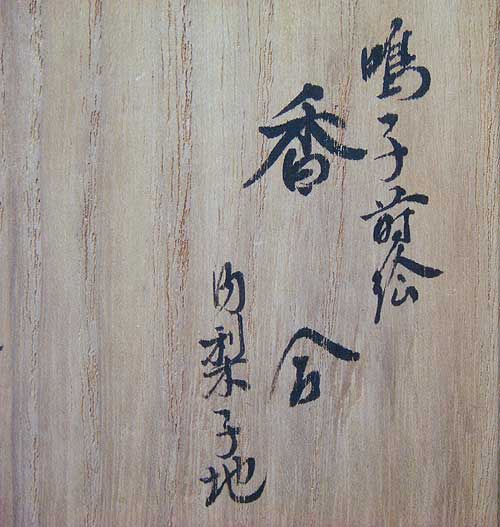 鳴子蒔絵
香合
内梨子地